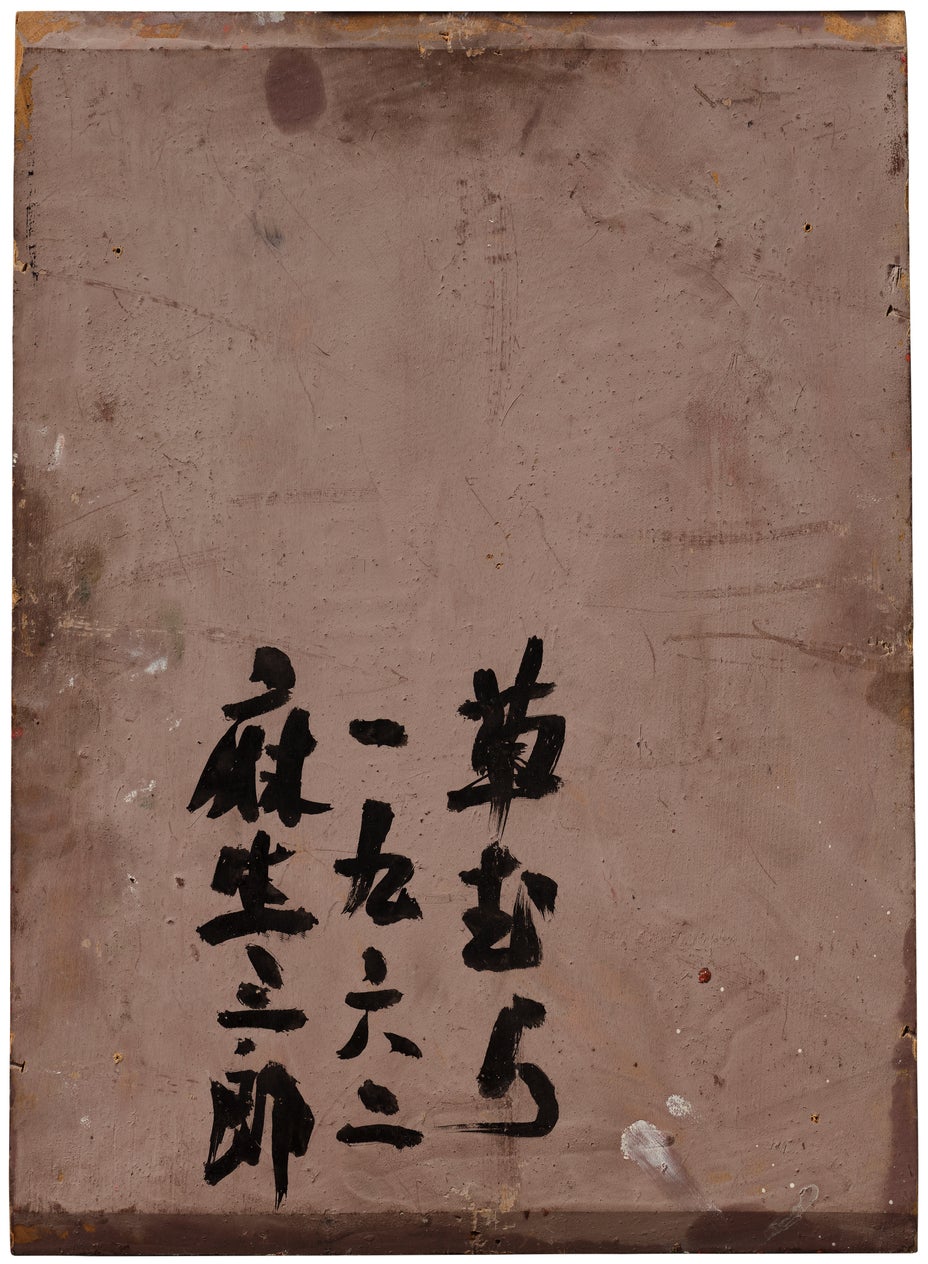 草むら
一九六二
麻生三郎